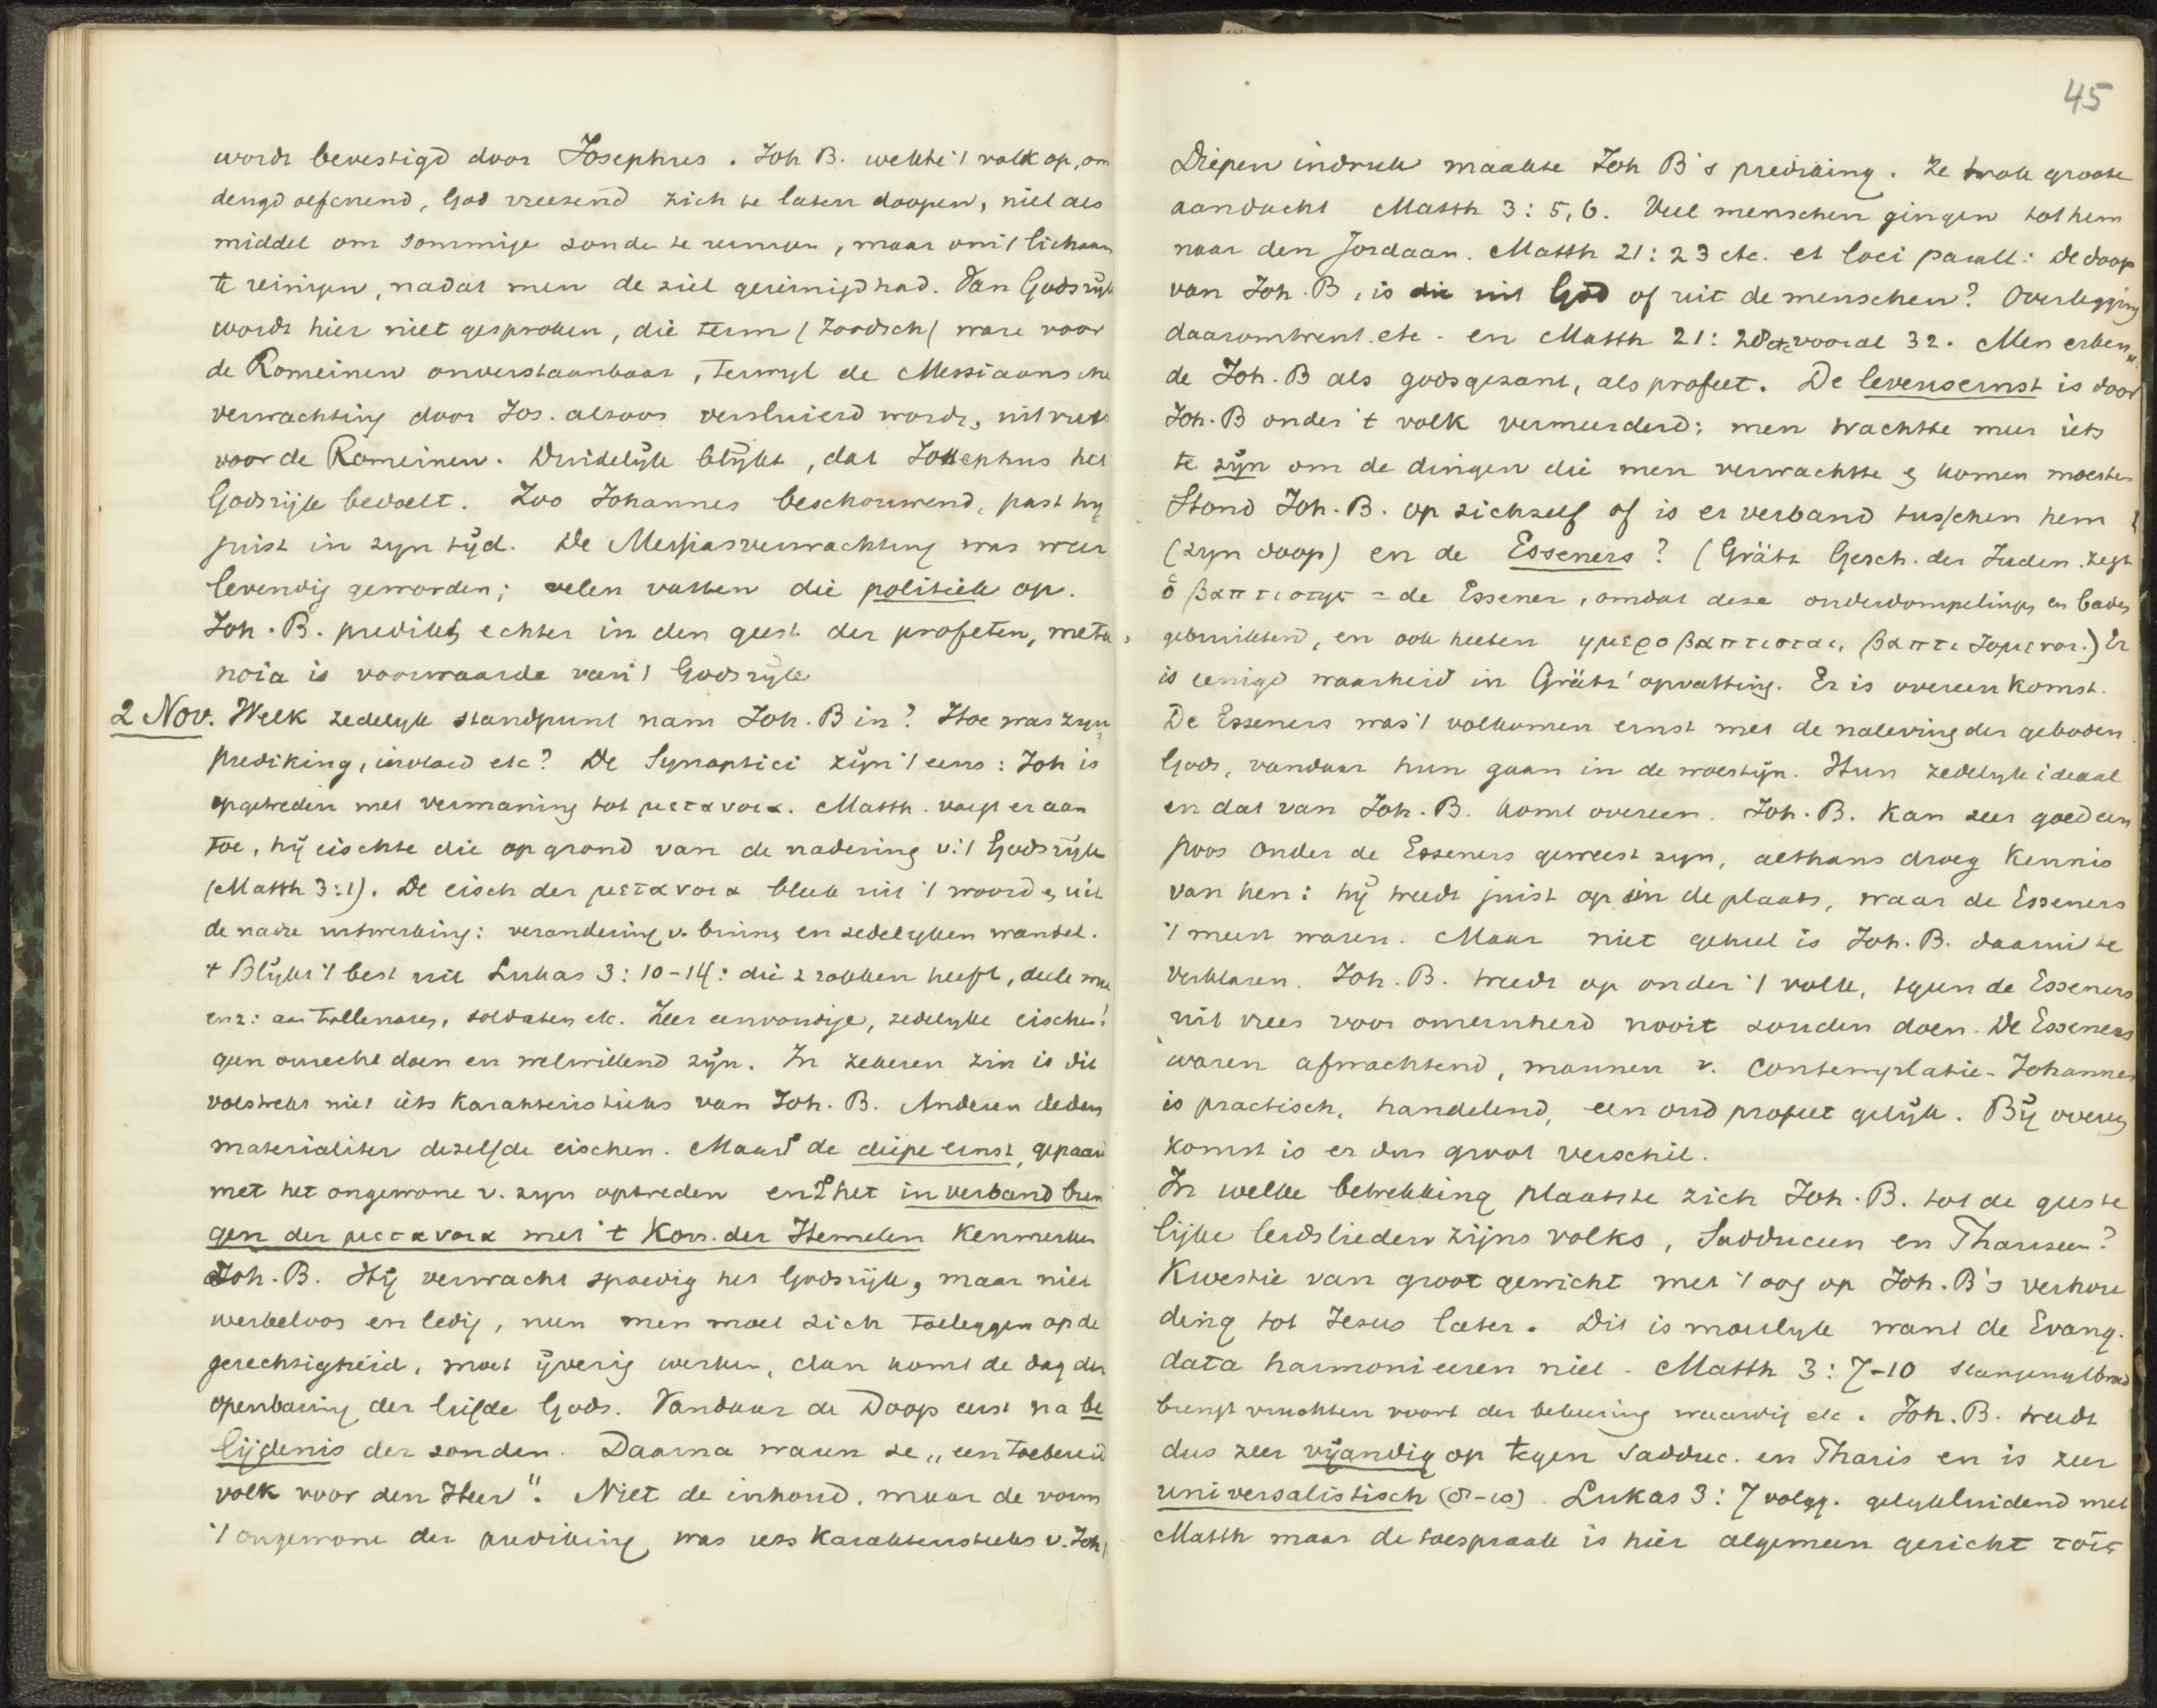 wordt bevestigd door Josephus. Joh B. wekte 't volk op, om
deugd oefenend, God vreezend zich te laten doopen, niet als
middel om sommige zonde te reinigen, maar om 't lichaam
te reinigen, nadat men de ziel gereinigd had. Van Godsrijk
wordt hier niet gesproken, die term (Joodsch) ware voor
de Romeinen onverstaanbaar, terwyl de Messiaansche
verwachting door Jos. alzoo versluierd wordt, uit vrees
voor de Romeinen. Duidelijk blijkt, dat Josephus het
Godsrijk bedoelt. Zoo Johannes beschouwend, past hy
juist in zyn tijd. De Messiasverwachting was weer
levendig geworden; velen vatten die politiek op.
Joh. B. predikt echter in den geest der profeten, meta
noia is voorwaarde van 't Godsryk
2 Nov. Welk zedelyk standpunt nam Joh. B in? Hoe was zyn
prediking, invloed etc? De Synoptici zijn 't eens: Joh is
opgetreden met vermaning tot μετανοια. Matth. voegt er aan
toe, hij eischte die op grond van de nadering v. 't Godsrijk
(Matth 3:1). De eisch der μετανοια bleek uit 't woord & uit
de nadre uitwerking: verandering v. binnen en zedelyken wandel.
+ Blijkt 't best uit Lukas 3: 10-14: die 2 rokken heeft, deele mee
enz: aan tollenaren, soldaten etc. Zeer eenvoudige, zedelyke eischen!
geen onrecht doen en welwillend zijn. In zekeren zin is dit
volstrekt niet iets karakteristieks van Joh. B. Anderen deden
materialiter dezelfde eischen. Maar 1° de diepe ernst, gepaard
met het ongewone v. zyn optreden en 2° het in verband bren
gen der μετανοια met 't Kon. der Hemelen kenmerken
Joh. B. Hij verwacht spoedig het Godsrijk, maar niet
werkeloos en ledig, neen men moet zich toeleggen op de
gerechtigheid, moet ijverig werken, dan komt de dag der
openbaring der liefde Gods. Vandaar de Doop eerst na be
lijdenis der zonden. Daarna waren ze „een toebereid
volk voor den Heer". Niet de inhoud, maar de vorm
't ongewone der prediking was iets karakteristieks v. Joh
45
Diepen indruk maakte Joh B's prediking. Ze trok groote
aandacht Matth 3: 5, 6. Veel menschen gingen tot hem
naar den Jordaan. Matth 21: 23 etc. et loci parall: De doop
van Joh. B, is die uit God of uit de menschen? Overlegging
daaromtrent etc. en Matth 21: 28 etc vooral 32. Men erken
de Joh. B als godsgezant, als profeet. De levensernst is door
Joh. B onder 't volk vermeerderd; men trachtte meer iets
te zijn om de dingen die men verwachtte & komen moesten
Stond Joh. B. op zichzelf of is er verband tusschen hem
(zyn doop) en de Esseners? (Grätz Gesch. der Juden. zegt
ὁ βαπτιστης = de Essener, omdat deze onderdompelingen en baden
gebruikten, en ook heeten ημεροβαπτισται, βαπτιζομενοι.) Er
is eenige waarheid in Grätz' opvatting. Er is overeenkomst.
De Esseners was 't volkomen ernst met de naleving der geboden
Gods, vandaar hun gaan in de woestijn. Hun zedelyk ideaal
en dat van Joh. B. komt overeen. Joh. B. kan zeer goed een
poos onder de Esseners geweest zyn, althans droeg kennis
van hen: hij treedt juist op in de plaats, waar de Esseners
't meest waren. Maar niet geheel is Joh. B. daaruit te
verklaren. Joh. B. treedt op onder 't volk, 'tgeen de Esseners
uit vrees voor onreinheid nooit zouden doen. De Esseners
waren afwachtend, mannen v. contemplatie. Johannes
is practisch, handelend, een oud profeet gelijk. Bij overeen
komst is er dus groot verschil.
In welke betrekking plaatste zich Joh. B. tot de geeste
lijke leidslieden zijns volks, Sadduceen en Phariseen?
Kwestie van groot gewicht met 't oog op Joh. B's verhou
ding tot Jezus later. Dit is moeilyk want de Evang.
data harmonieeren niet. Matth 3: 7-10 slangengebroed
brengt vruchten voort der bekeering waardig etc. Joh. B. treedt
dus zeer vijandig op tegen Sadduc. en Pharis en is zeer
universalistisch (8-10). Lukas 3: 7 volgg. gelykluidend met
Matth maar de toespraak is hier algemeen gericht τοις